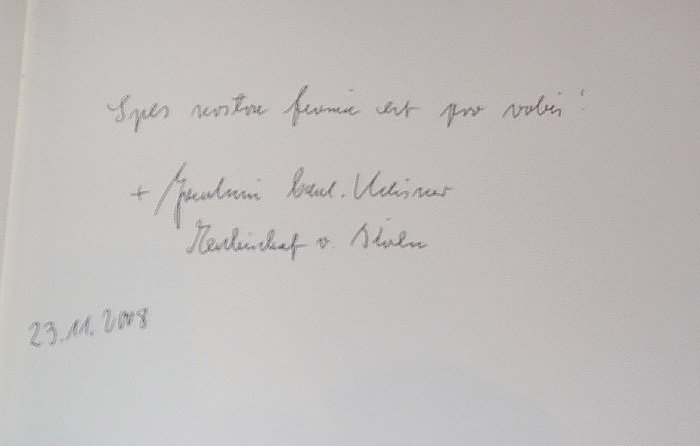 Spes nostra firma est pro vobis!
+ Joachim Card. Meisner
Erzbischof v. Köln
23.11.2008